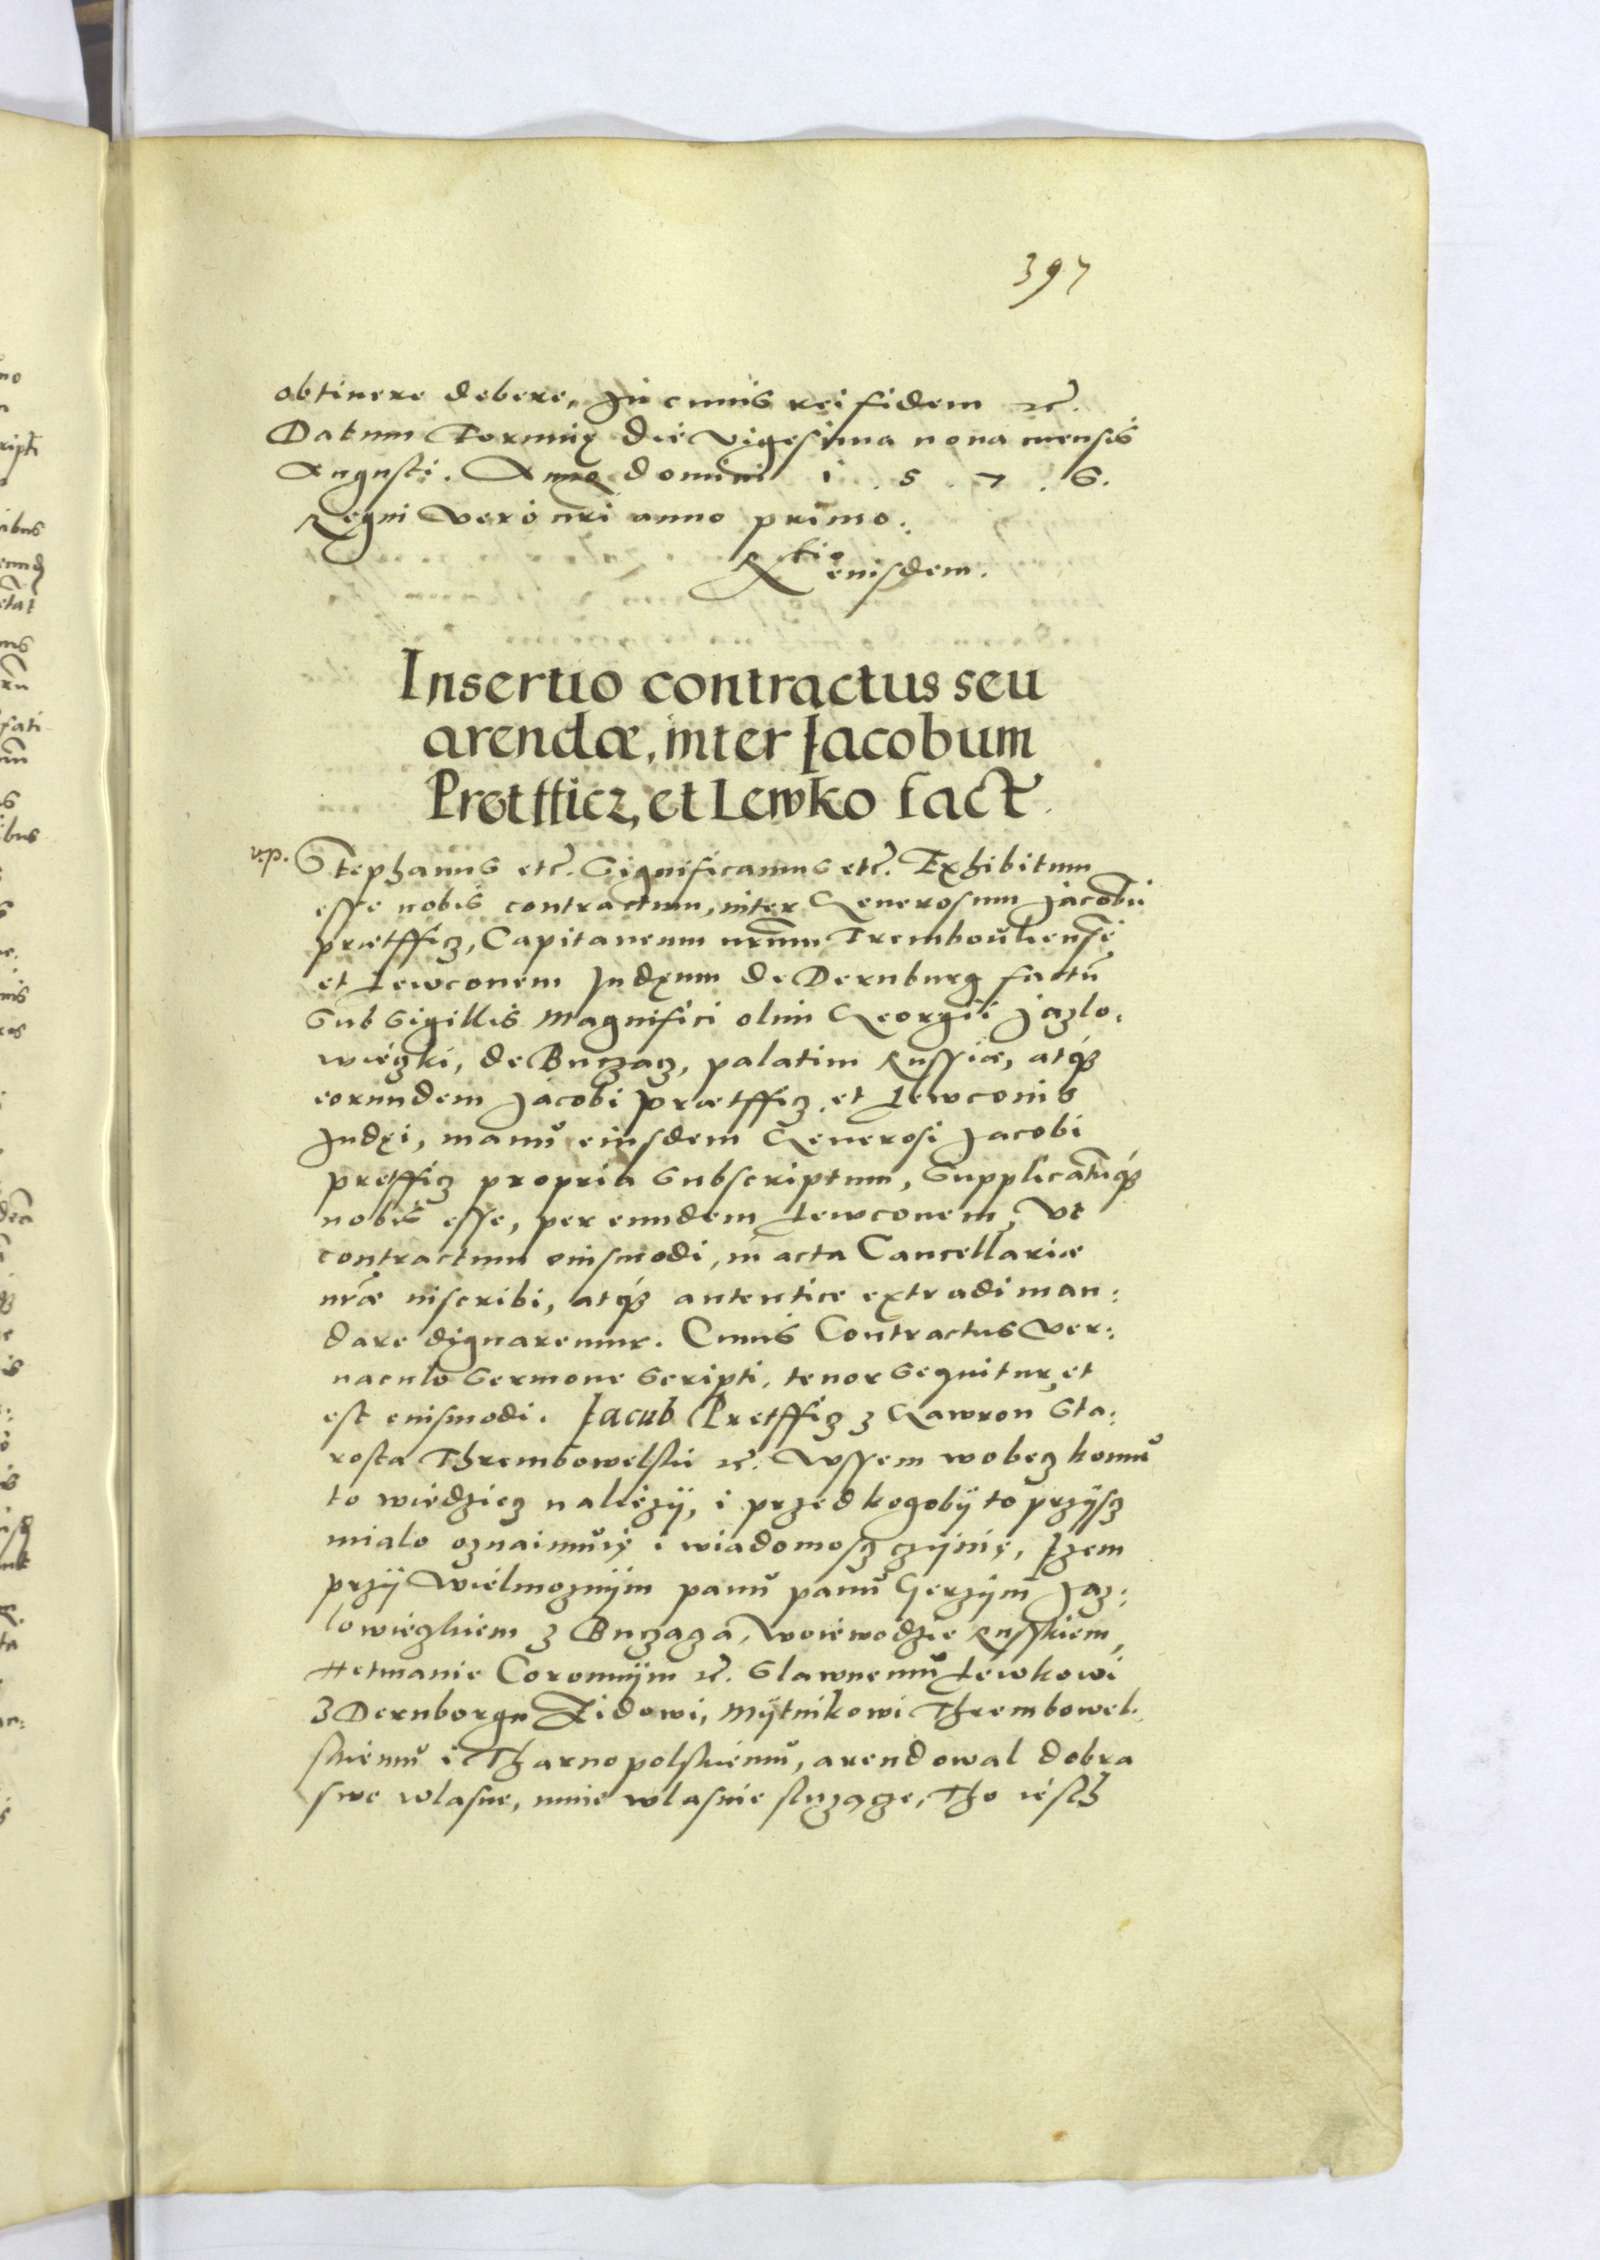 397
obtinere debere, In cuius rei fidem etc.
Datum Toruniȩ die vigesima nona mensis
Augusti. Anno domini 1.5.7.6.
Regni vero nrī anno primo.
Rtio eiusdem.
Insertio contractus seu
arendæ, inter Jacobum
Pretfficz, et Lewko fact
v.p. Stephanus etc. Significamus etc. Exhibitum
esse nobis contractum, inter Generosum Jacobū
prætfficz, Capitaneum nrūm Trembouliensē,
et Lewconem Judȩum de Dernburg factū
sub sigillis Magnifici olim Georgii Jazlo,
wieczki, de Buczacz, palatini Russiæ, atq3
eorundem Jacobi prætfficz et Lewconis
Judȩi, manu eiusdem Generosi Jacobi
pretfficz propria subscriptum, supplicatūq3
nobis esse, per eundem Lewconem, Vt
contractum eiusmodi, in acta Cancellariæ
nrāe inscribi, atq3 autentice extradi man:
dare dignaremur. Cuius Contractus ver:
naculo sermone scripti, tenor sequitur, et
est eiusmodi. Jacub Pretfficz z Gawron Sta:
rosta Thrembowelski etc. Wssem wobecz komu
to wiedziecz należy, i przed kogoby to przysc3
mialo oznaimuię i wiadomoscz czynię, Izem
przy Wielmoznym panu panu Gerzym Jaz:
lowieczkiem z Buczacza, Woiewodzie Russkiem,
Hetmanie Coronnym etc. Slawnemu Lewkowi
z Dernborgu Zidowi, Mytnikowi Thrembowel.
skiemu i Tharnopolskiemu, arendowal dobra
swe wlasne, mnie wlasnie sluzącze, Tho iesth